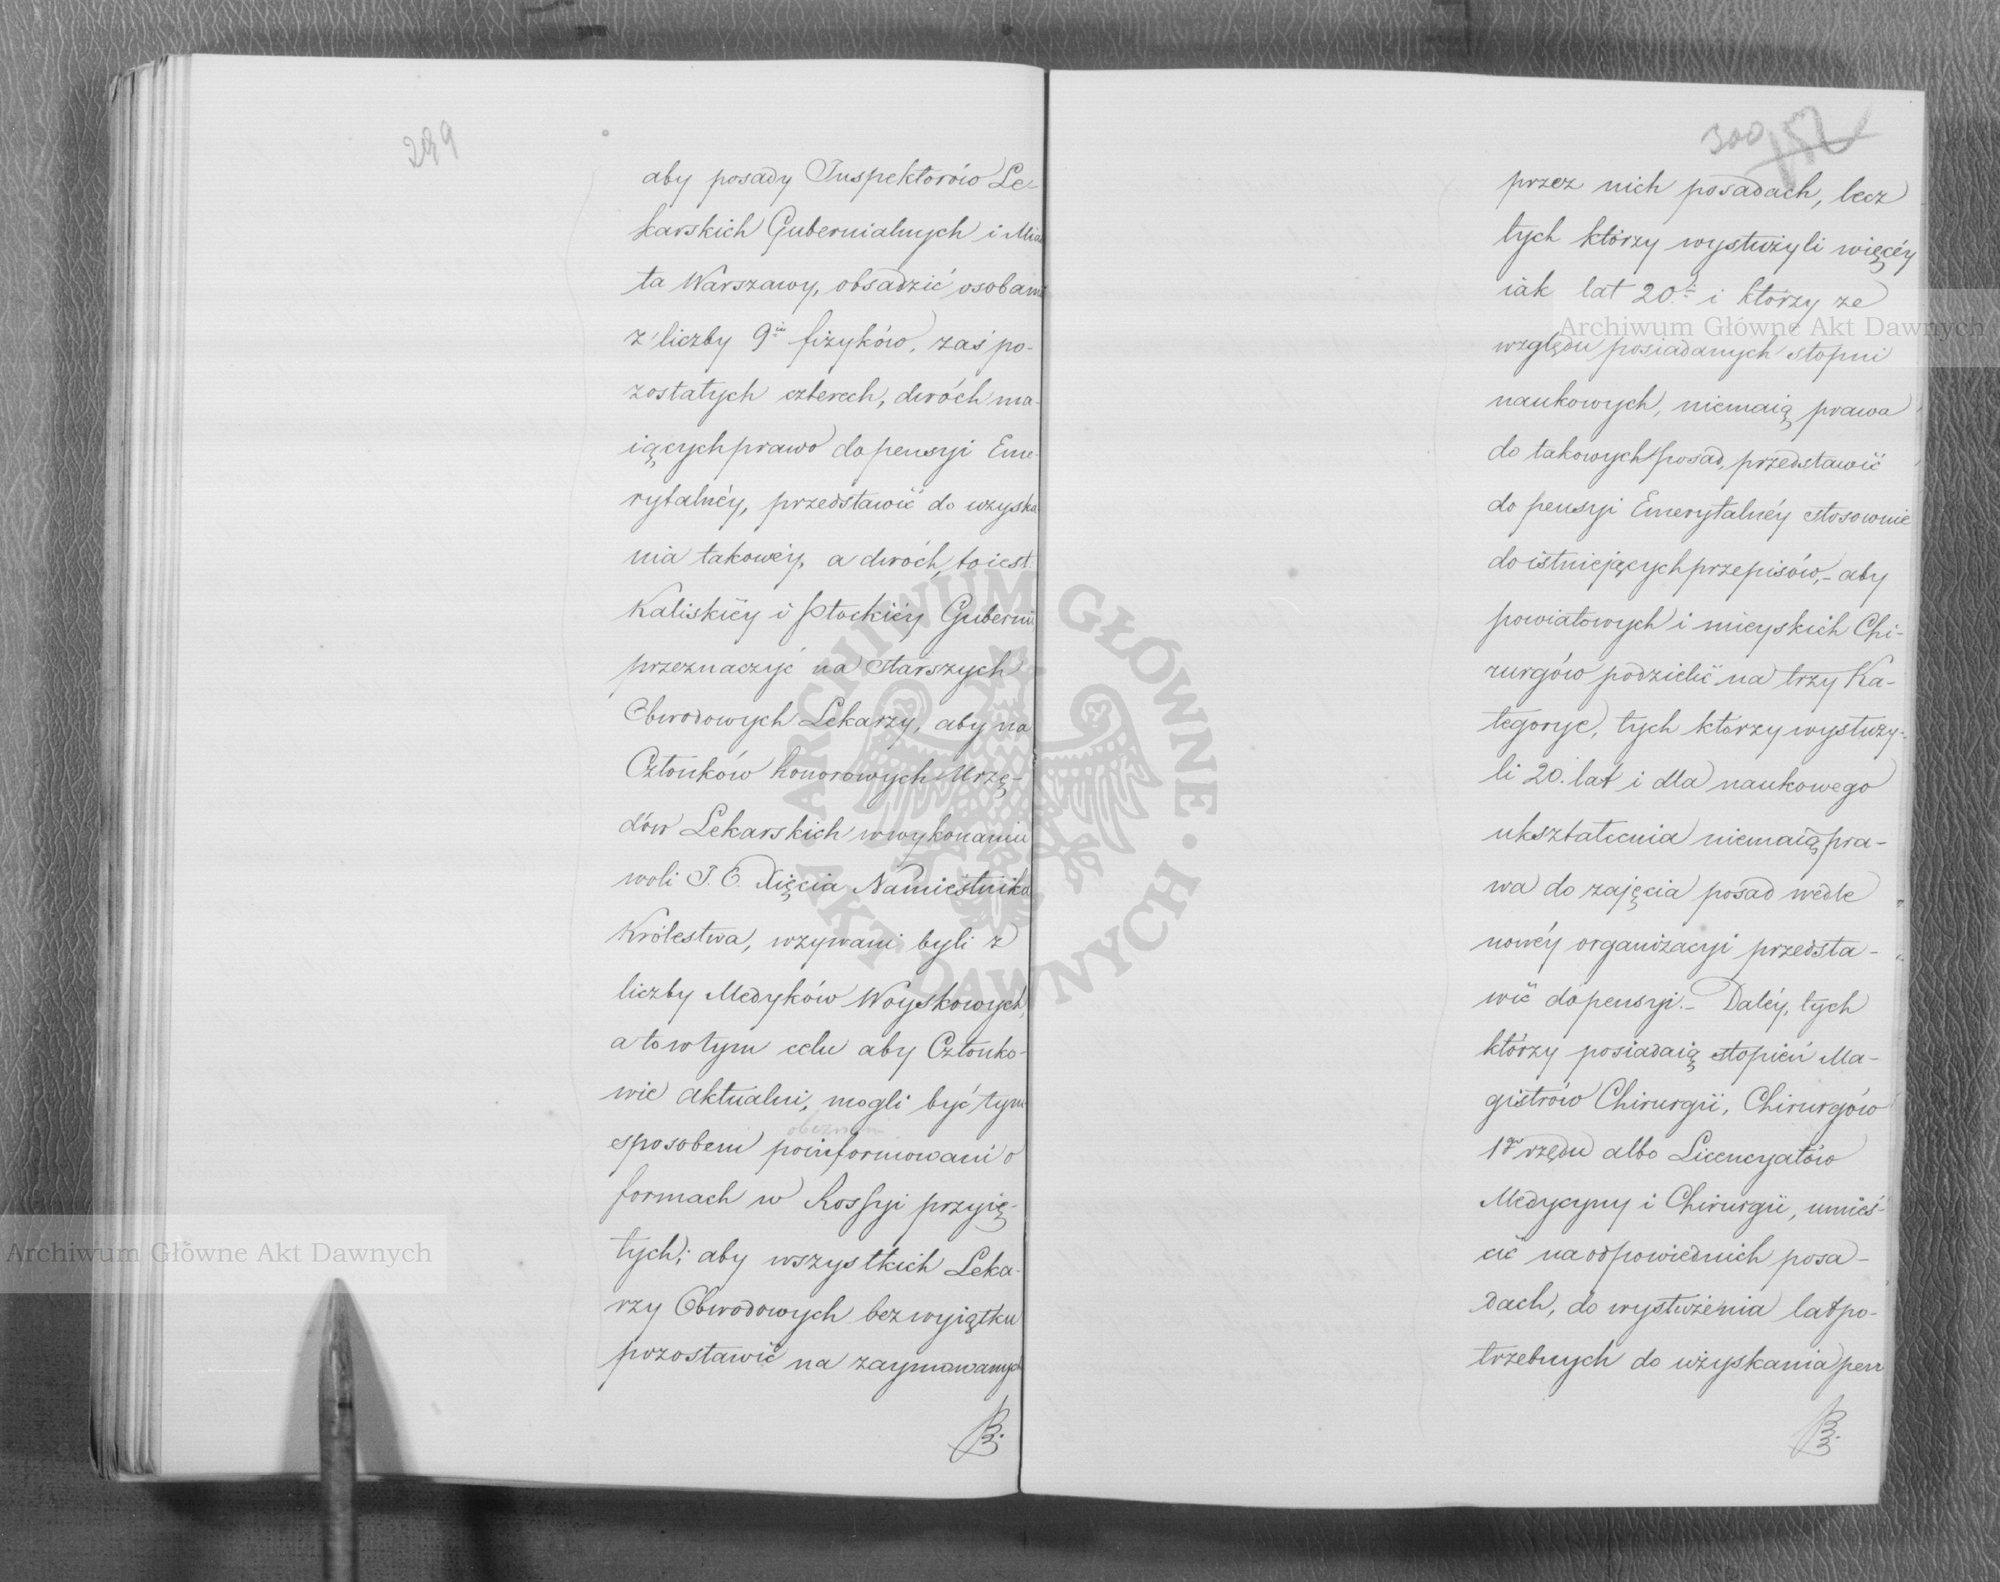 299
aby posady Inspektorów Le-
karskich Gubernialnych i Mia
ta Warszawy, obsadzić osobami
z liczby 9iu fizyków, zaś po-
zostałych czterech, dwóch ma-
iących prawo do pensyi Eme-
rytalnéy, przedstawić do uzyska
nia takowéy, a dwóch, to iest
Kaliskiéy i Płockiéy Gubernii
przeznaczyć na Starszych
Obwodowych Lekarzy, aby na
Członków honorowych Urzę-
dów Lekarskich w wykonaniu
woli J. O. Xięcia Namiestnika
Królestwa, wzywani byli z
liczby Medyków Woyskowych,
a to w tym celu aby Członko-
wie aktualni, mogli być tym
obeznani
sposobem poinformowani o
formach w Rossyi przyię-
tych; aby wszystkich Leka-
rzy Obwodowych bez wyiątku
pozostawić na zaymowanych
B.
300 152
przez nich posadach, lecz
tych którzy wysłużyli więcéy
iak lat 20. i którzy ze
względu posiadanych stopni
naukowych, niemaią prawa
do takowych posad, przedstawić
do pensyi Emerytalnéy stosownie
do istniejących przepisów, – aby
powiatowych i mieyskich Chi-
rurgów podzielić na trzy Ka-
tegorye, tych którzy wysłuży-
li 20. lat i dla naukowego
ukształcenia niemaią pra-
wa do zajęcia posad wedle
nowéy organizacyi przedsta-
wić do pensyi. – Daléy, tych
którzy posiadaią stopień Ma-
gistrów Chirurgii, Chirurgów
1go rzędu albo Licencyatów
Medycyny i Chirurgii, umieś-
cić na odpowiednich posa-
dach, do wysłużenia lat po-
trzebnych do uzyskania pen
B.
Archiwum Główne Akt Dawnych
Archiwum Główne Akt Dawnych
ARCHIWUM GŁÓWNE AKT DAWNYCH